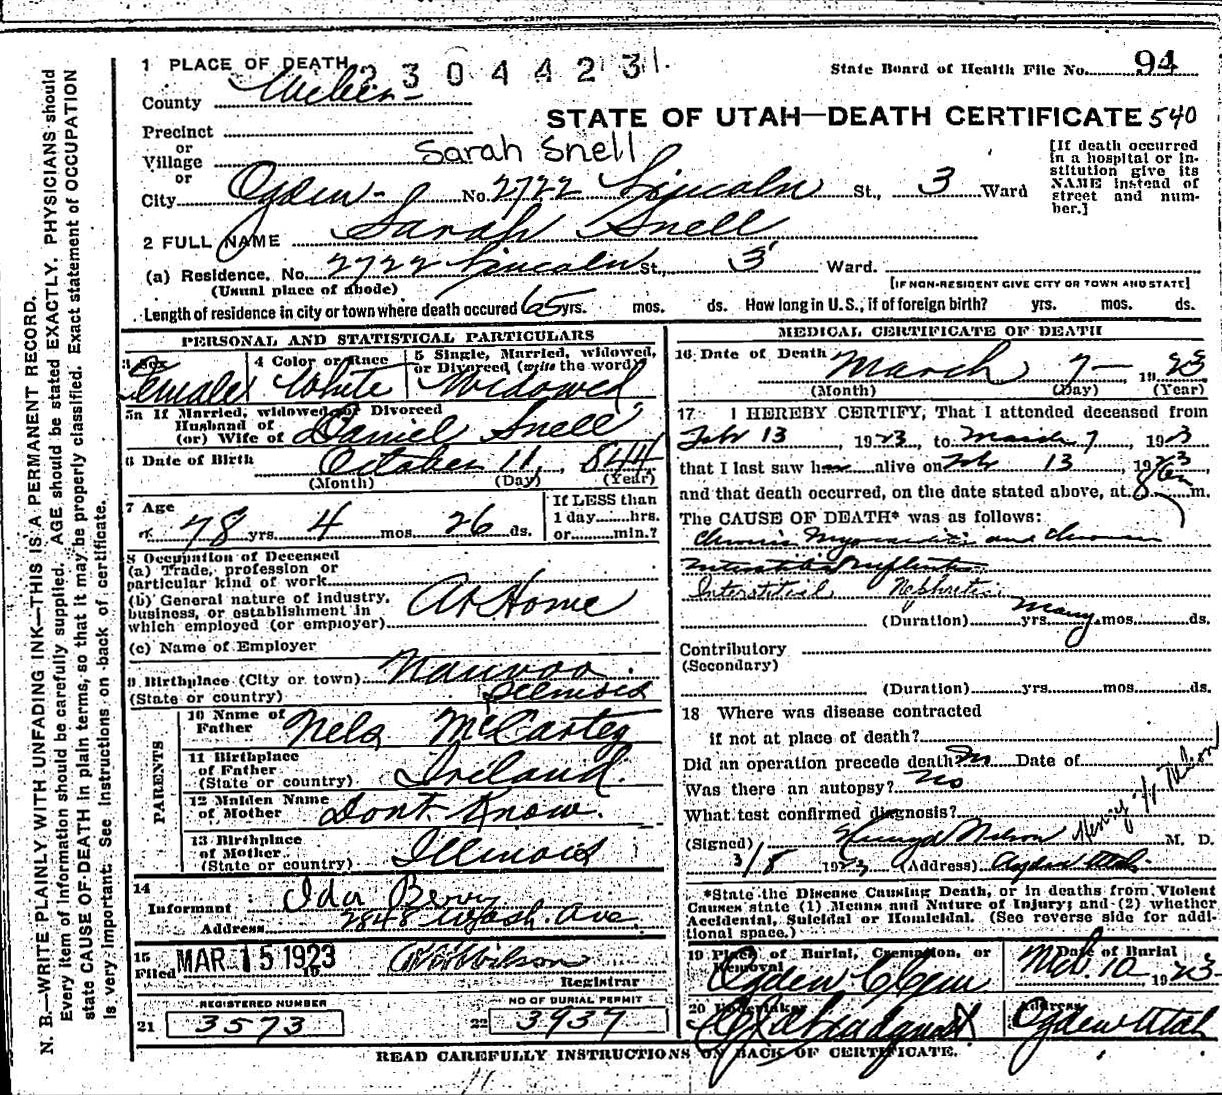 1 PLACE OF DEATH 2304423
State Board of Health File No. 94
County Weber
STATE OF UTAH—DEATH CERTIFICATE 540
Precinct
or
Village
Sarah Snell
or
City Ogden No. 2722 Lincoln St., 3 Ward
[If death occurred in a hospital or institution give its NAME instead of street and number.]
2 FULL NAME Sarah Snell
(a) Residence. No. 2722 Lincoln St., 3 Ward.
(Usual place of abode)
[IF NON-RESIDENT GIVE CITY OR TOWN AND STATE]
Length of residence in city or town where death occured 65 yrs. mos. ds. How long in U.S., if of foreign birth? yrs. mos. ds.
PERSONAL AND STATISTICAL PARTICULARS
3 Sex
Female
4 Color or Race
White
5 Single, Married, widowed,
or Divorced (write the word)
Widowed
5a If Married, widowed or Divorced
Husband of
(or) Wife of Daniel Snell
6 Date of Birth October 11, 1844
(Month) (Day) (Year)
7 Age
78 yrs. 4 mos. 26 ds.
If LESS than
1 day......hrs.
or......min.?
8 Occupation of Deceased
(a) Trade, profession or
particular kind of work
(b) General nature of industry,
business, or establishment in
which employed (or employer)
At Home
(c) Name of Employer
9 Birthplace (City or town) Nauvoo
(State or country) Illinois
PARENTS
10 Name of
Father Nels McCarty
11 Birthplace
of Father
(State or country) Ireland.
12 Maiden Name
of Mother Dont Know.
13 Birthplace
of Mother
(State or country) Illinois
14
Informant Ida Berry
Address 2848 Wash. Ave.
15
Filed MAR 15 1923 Wilson
Registrar
REGISTERED NUMBER
21 3573
NO OF BURIAL PERMIT
22 3937
MEDICAL CERTIFICATE OF DEATH
16 Date of Death March 7 — 1923
(Month) (Day) (Year)
17 I HEREBY CERTIFY, That I attended deceased from
Feb 13, 1923, to March 7, 1923
that I last saw her alive on Feb 13, 1923
and that death occurred, on the date stated above, at 8 m.
The CAUSE OF DEATH* was as follows:
Chronic Myocarditis and Chronic
Interstitial Nephritis
Interstitial Nephritis.
(Duration) yrs. many mos. ds.
Contributory
(Secondary)
(Duration) yrs. mos. ds.
18 Where was disease contracted
if not at place of death?
Did an operation precede death? No Date of
Was there an autopsy? No
What test confirmed diagnosis?
(Signed) Henry Nelson M. D.
3/8 1923 (Address) Ogden Utah.
*State the Disease Causing Death, or in deaths from Violent
Causes state (1) Means and Nature of Injury; and (2) whether
Accidental, Suicidal or Homicidal. (See reverse side for addi-
tional space.)
19 Place of Burial, Cremation, or
Removal
Ogden C Cem
Date of Burial
Mch 10, 1923
20 Undertaker
Address
Ogden Utah
READ CAREFULLY INSTRUCTIONS ON BACK OF CERTIFICATE.
N. B.—WRITE PLAINLY WITH UNFADING INK—THIS IS A PERMANENT RECORD.
Every item of information should be carefully supplied. AGE should be stated EXACTLY. PHYSICIANS should
state CAUSE OF DEATH in plain terms, so that it may be properly classified. Exact statement of OCCUPATION
is very important. See Instructions on back of certificate.